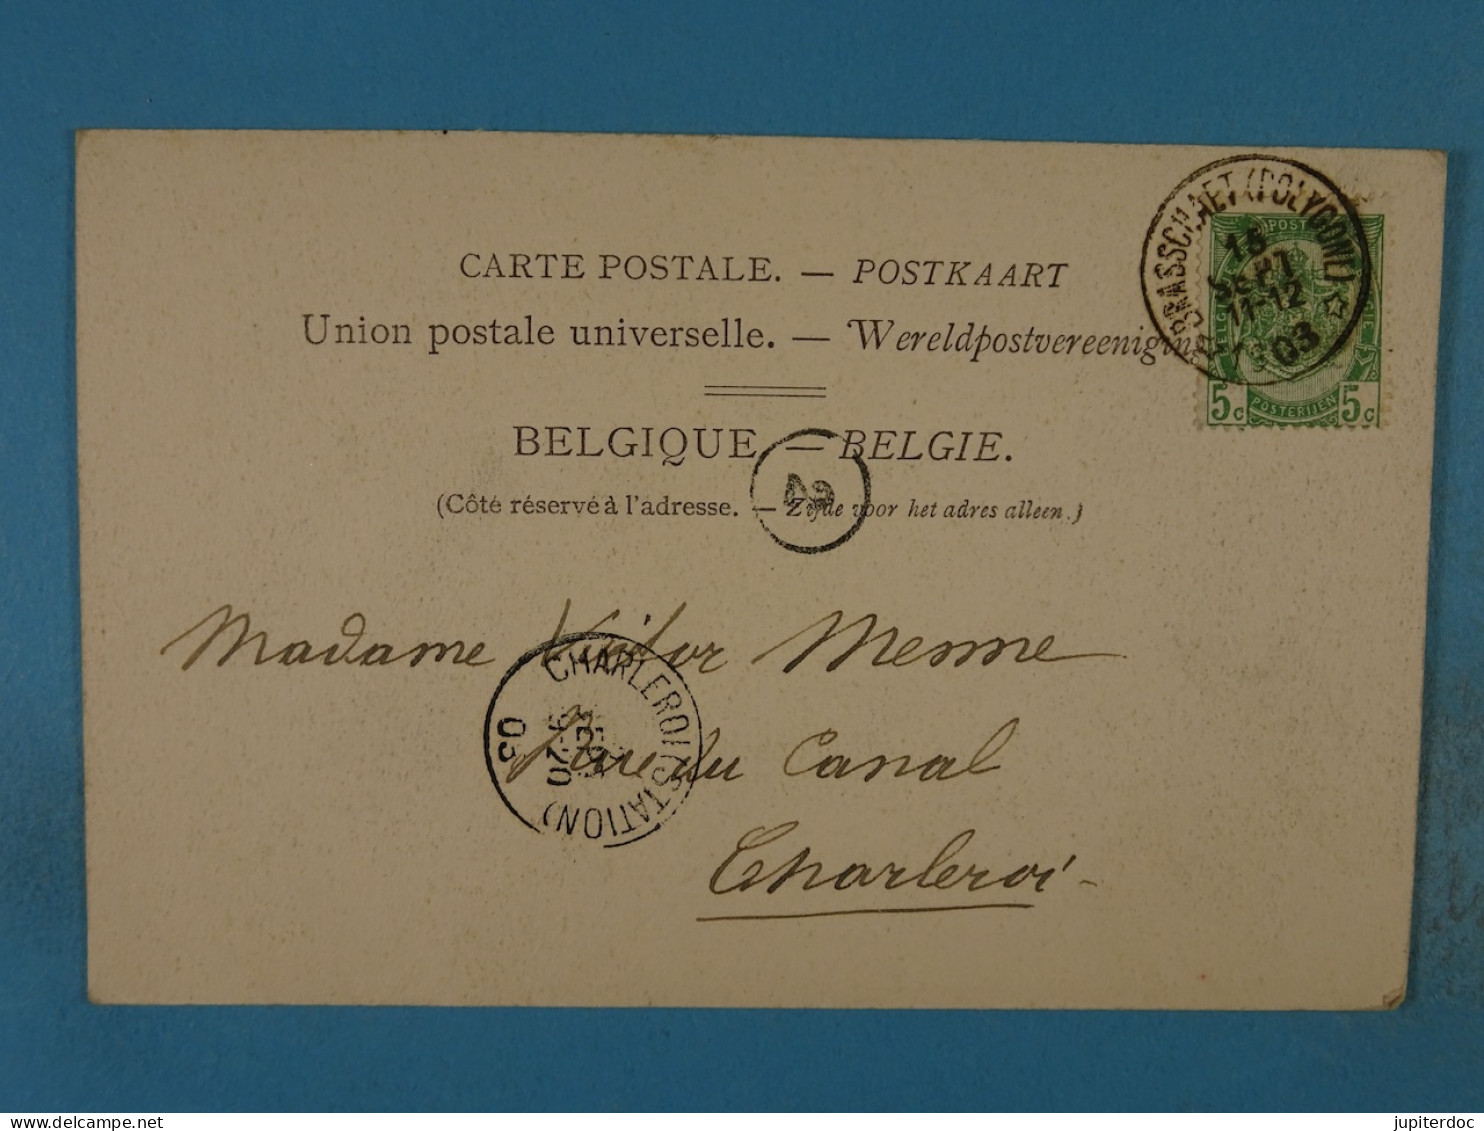 CARTE POSTALE. — POSTKAART
Union postale universelle. — Wereldpostvereeniging
BELGIQUE — BELGIE.
(Côté réservé à l'adresse. — Zijde voor het adres alleen.)
BRASSCHAET (POLYGONE)
16
SEPT
11-12
1903
POST
5c POSTERIJEN 5c
Madame Victor Menne
Rue du Canal
Charleroi
CHARLEROI (STATION)
03
jupiterdoc